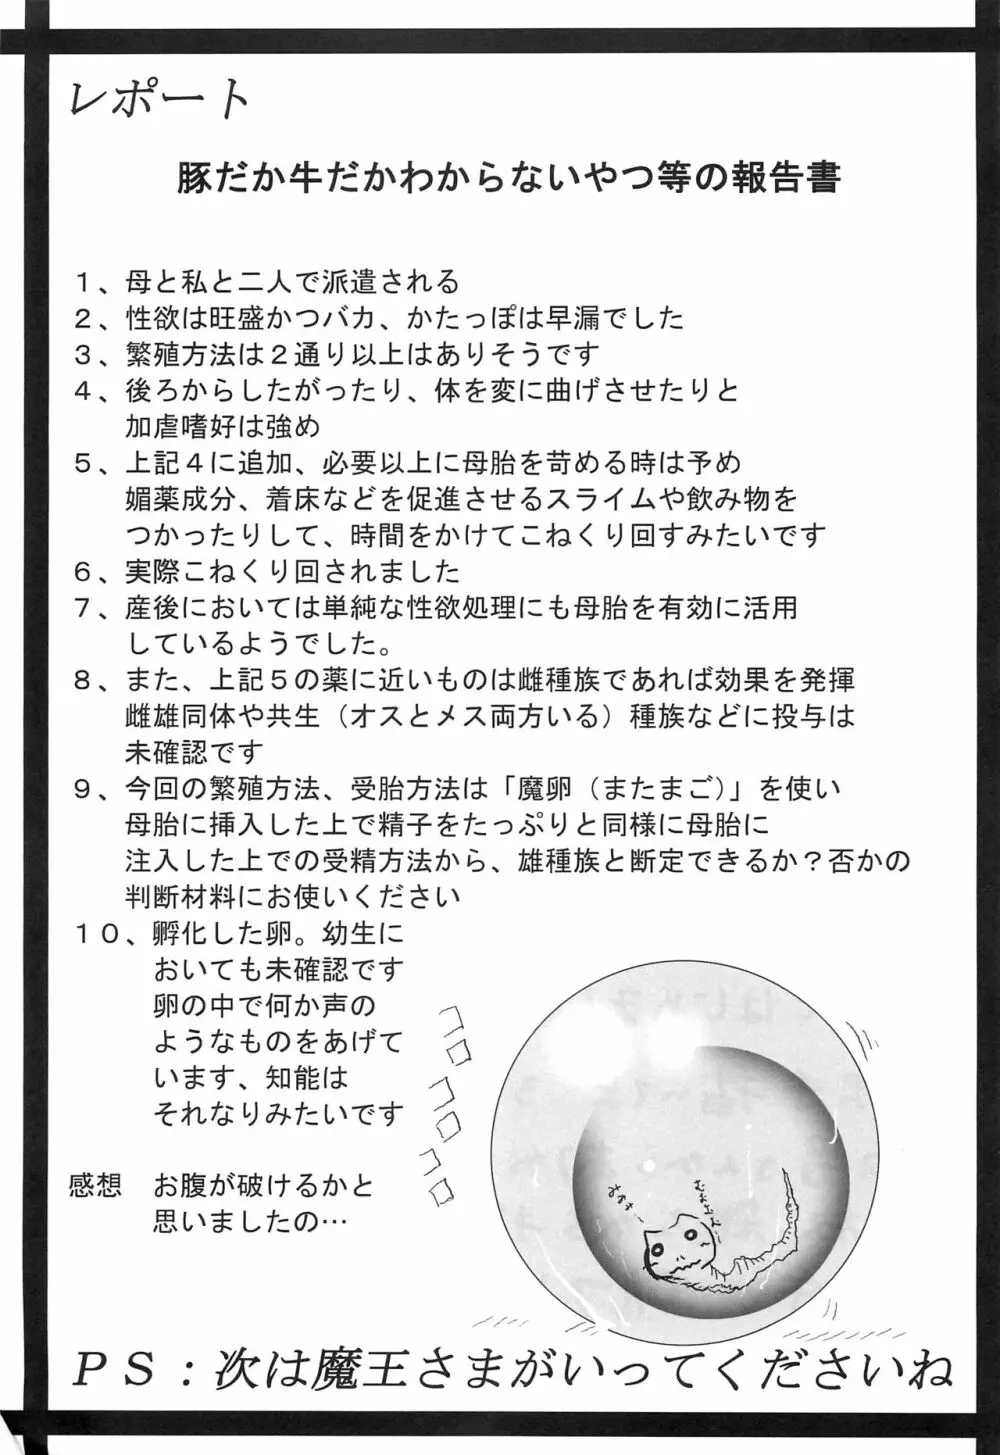 レポート
豚だか牛だかわからないやつ等の報告書
１、母と私と二人で派遣される
２、性欲は旺盛かつバカ、かたっぽは早漏でした
３、繁殖方法は２通り以上はありそうです
４、後ろからしたがったり、体を変に曲げさせたりと
加虐嗜好は強め
５、上記４に追加、必要以上に母胎を苛める時は予め
媚薬成分、着床などを促進させるスライムや飲み物を
つかったりして、時間をかけてこねくり回すみたいです
６、実際こねくり回されました
７、産後においては単純な性欲処理にも母胎を有効に活用
しているようでした。
８、また、上記５の薬に近いものは雌種族であれば効果を発揮
雌雄同体や共生（オスとメス両方いる）種族などに投与は
未確認です
９、今回の繁殖方法、受胎方法は「魔卵（またまご）」を使い
母胎に挿入した上で精子をたっぷりと同様に母胎に
注入した上での受精方法から、雄種族と断定できるか？否かの
判断材料にお使いください
１０、孵化した卵。幼生に
おいても未確認です
卵の中で何か声の
ようなものをあげて
います、知能は
それなりみたいです
コロコロコロ
感想　お腹が破けるかと
思いましたの…
ＰＳ：次は魔王さまがいってくださいね